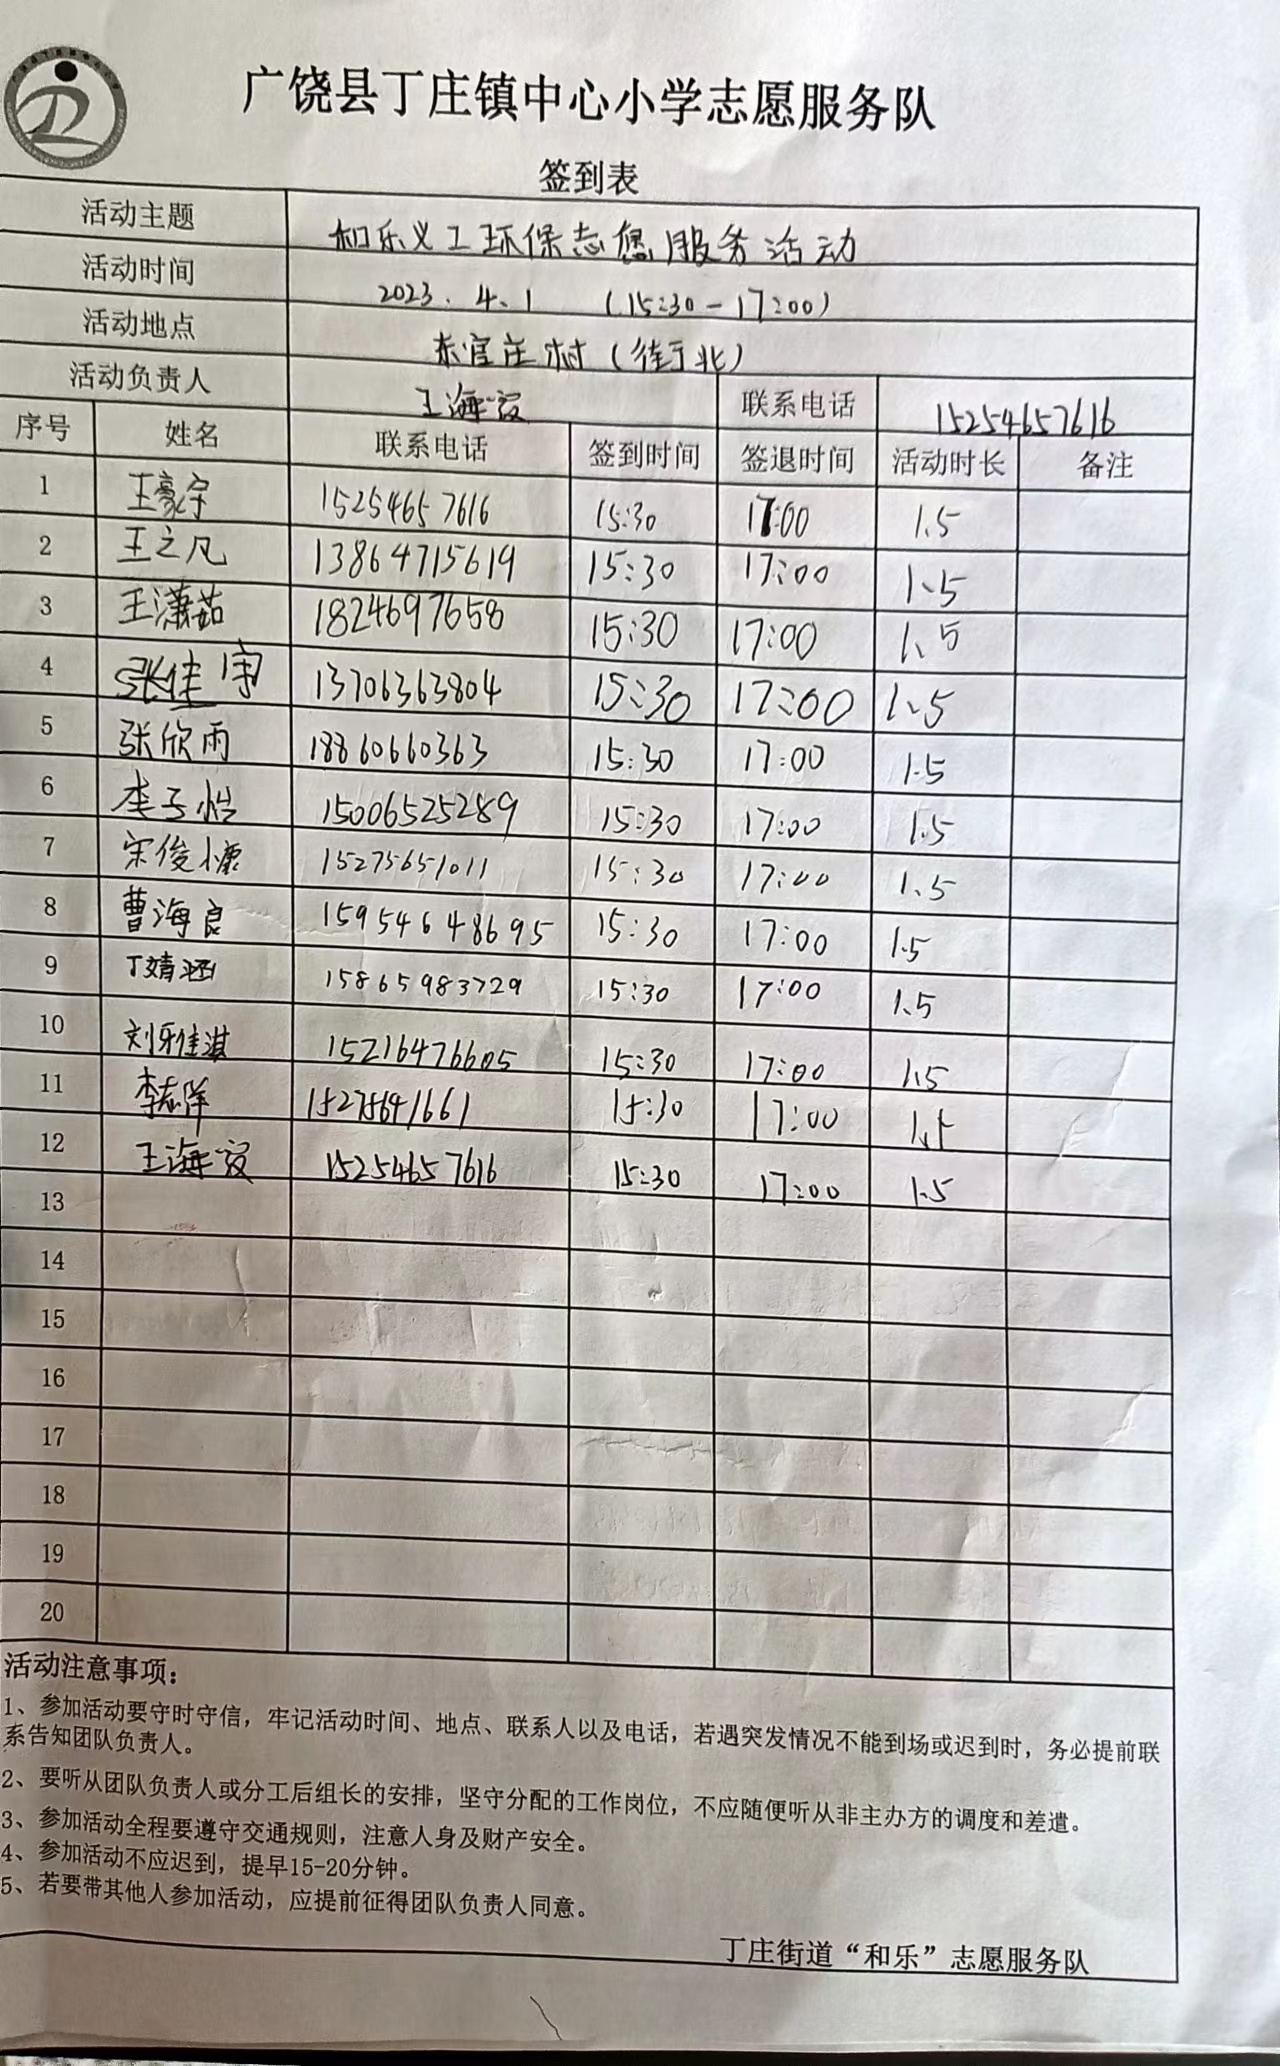 广饶县丁庄镇中心小学志愿服务队
签到表
活动主题 和乐义工环保志愿服务活动
活动时间 2023.4.1 (15:30-17:00)
活动地点 东官庄村(街于北)
活动负责人 王海霞 联系电话 15254657616
序号 姓名 联系电话 签到时间 签退时间 活动时长 备注
1 王豪宇 15254657616 15:30 17:00 1.5
2 王之凡 13864715619 15:30 17:00 1.5
3 王潇茹 1824697658 15:30 17:00 1.5
4 张佳宇 13706363804 15:30 17:00 1.5
5 张欣雨 18860660363 15:30 17:00 1.5
6 李子恺 15006525289 15:30 17:00 1.5
7 宋俊慷 15275651011 15:30 17:00 1.5
8 曹海良 15954648695 15:30 17:00 1.5
9 丁婧涵 15865983729 15:30 17:00 1.5
10 刘乐佳淇 15216476605 15:30 17:00 1.5
11 李志洋 15275641661 15:30 17:00 1.5
12 王海霞 15254657616 15:30 17:00 1.5
13
14
15
16
17
18
19
20
活动注意事项：
1、参加活动要守时守信，牢记活动时间、地点、联系人以及电话，若遇突发情况不能到场或迟到时，务必提前联
系告知团队负责人。
2、要听从团队负责人或分工后组长的安排，坚守分配的工作岗位，不应随便听从非主办方的调度和差遣。
3、参加活动全程要遵守交通规则，注意人身及财产安全。
4、参加活动不应迟到，提早15-20分钟。
5、若要带其他人参加活动，应提前征得团队负责人同意。
丁庄街道“和乐”志愿服务队